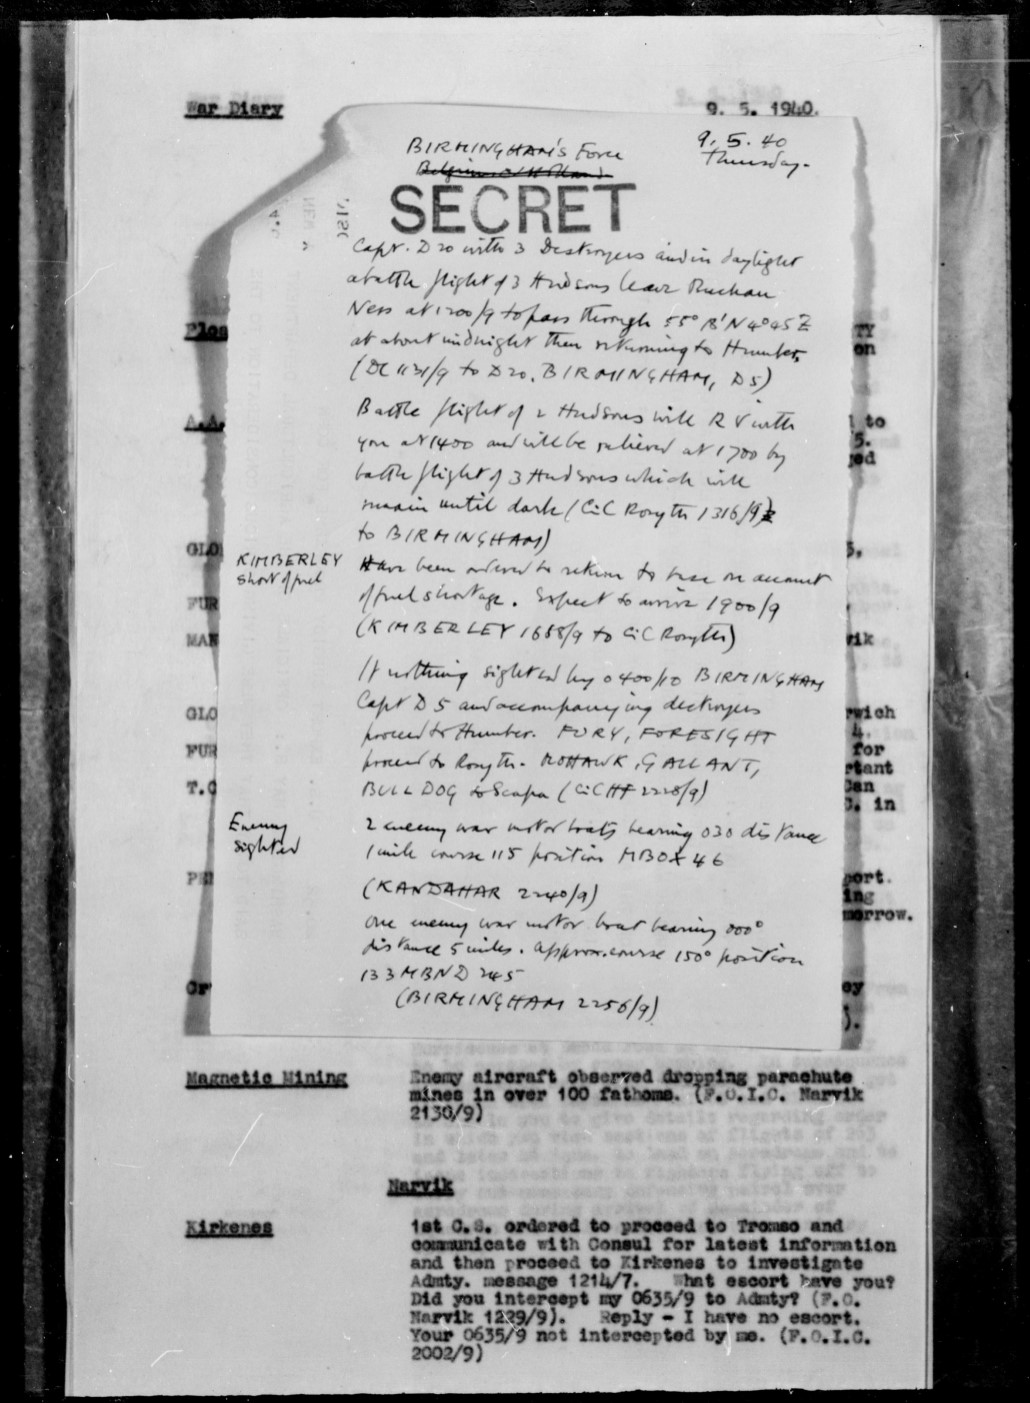 War Diary
9. 5. 1940.
BIRMINGHAM's Force
9. 5. 40
Thursday.
SECRET
Capt. D 20 with 3 Destroyers and in daylight
a battle flight of 3 Hudsons leave Buchan
Ness at 1200/9 to pass through 55° N 4° 45 E
at about midnight then returning to Humber,
(DC 1131/9 to D 20, BIRMINGHAM, D5)
Battle flight of 2 Hudsons will R V with
you at 1400 and will be relieved at 1700 by
battle flight of 3 Hudsons which will
remain until dark (CinC Rosyth 1316/9)
to BIRMINGHAM)
KIMBERLEY
short of fuel
Have been ordered to return to base on account
of fuel shortage. Expect to arrive 1900/9
(KIMBERLEY /9 to CinC Rosyth)
If nothing sighted by 0400/10 BIRMINGHAM
Capt D 5 and accompanying destroyers
proceed to Humber. FURY, FORESIGHT
proceed to Rosyth. MOHAWK, GALLANT,
BULLDOG to Scapa (CinC HF 2228/9)
Enemy
sighted
2 enemy war motor boats bearing 030 distance
1 mile course 115 position MBOX 46
(KANDAHAR 2240/9)
One enemy war motor boat bearing 000°
distance 5 miles. approx. course 150° position
133 MBND 245
(BIRMINGHAM 2256/9)
A.A.
GLO
FUR
MAN
GLO
FUR
TY
on
to
5.
ged
vik
rwich
4.
for
rtant
Can
in
port.
ing
morrow.
ey
).
Magnetic Mining
Enemy aircraft observed dropping parachute
mines in over 100 fathoms. (F.O.I.C. Narvik
2130/9)
Narvik
Kirkenes
1st C.S. ordered to proceed to Tromso and
communicate with Consul for latest information
and then proceed to Kirkenes to investigate
Admty. message 1214/7. What escort have you?
Did you intercept my 0635/9 to Admty? (F.O.
Narvik 1229/9). Reply - I have no escort.
Your 0635/9 not intercepted by me. (F.O.I.C.
2002/9)